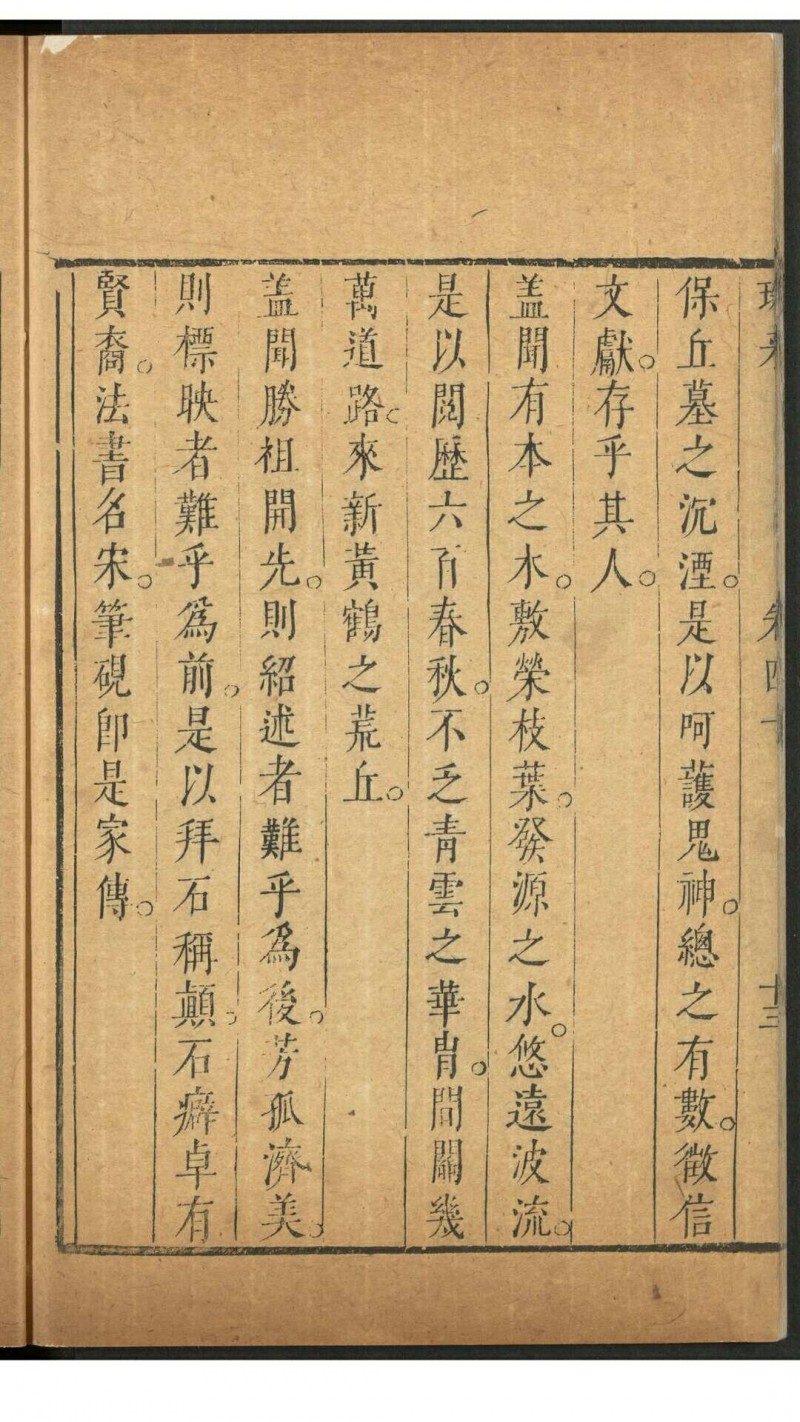 卷四十 十三
保丘墓之沉湮。是以呵護鬼神。總之有數。徵信
文獻。存乎其人。
盖聞有本之木。敷榮枝葉。發源之水。悠遠波流。
是以閱歷六百春秋。不乏青雲之華胄。間關幾
萬道路。來新黃鶴之荒丘。
盖聞勝祖開先。則紹述者難乎為後。芳孤濟美。
則標映者難乎為前。是以拜石稱顛。石癖卓有
賢裔。法書名宋。筆硯即是家傳。